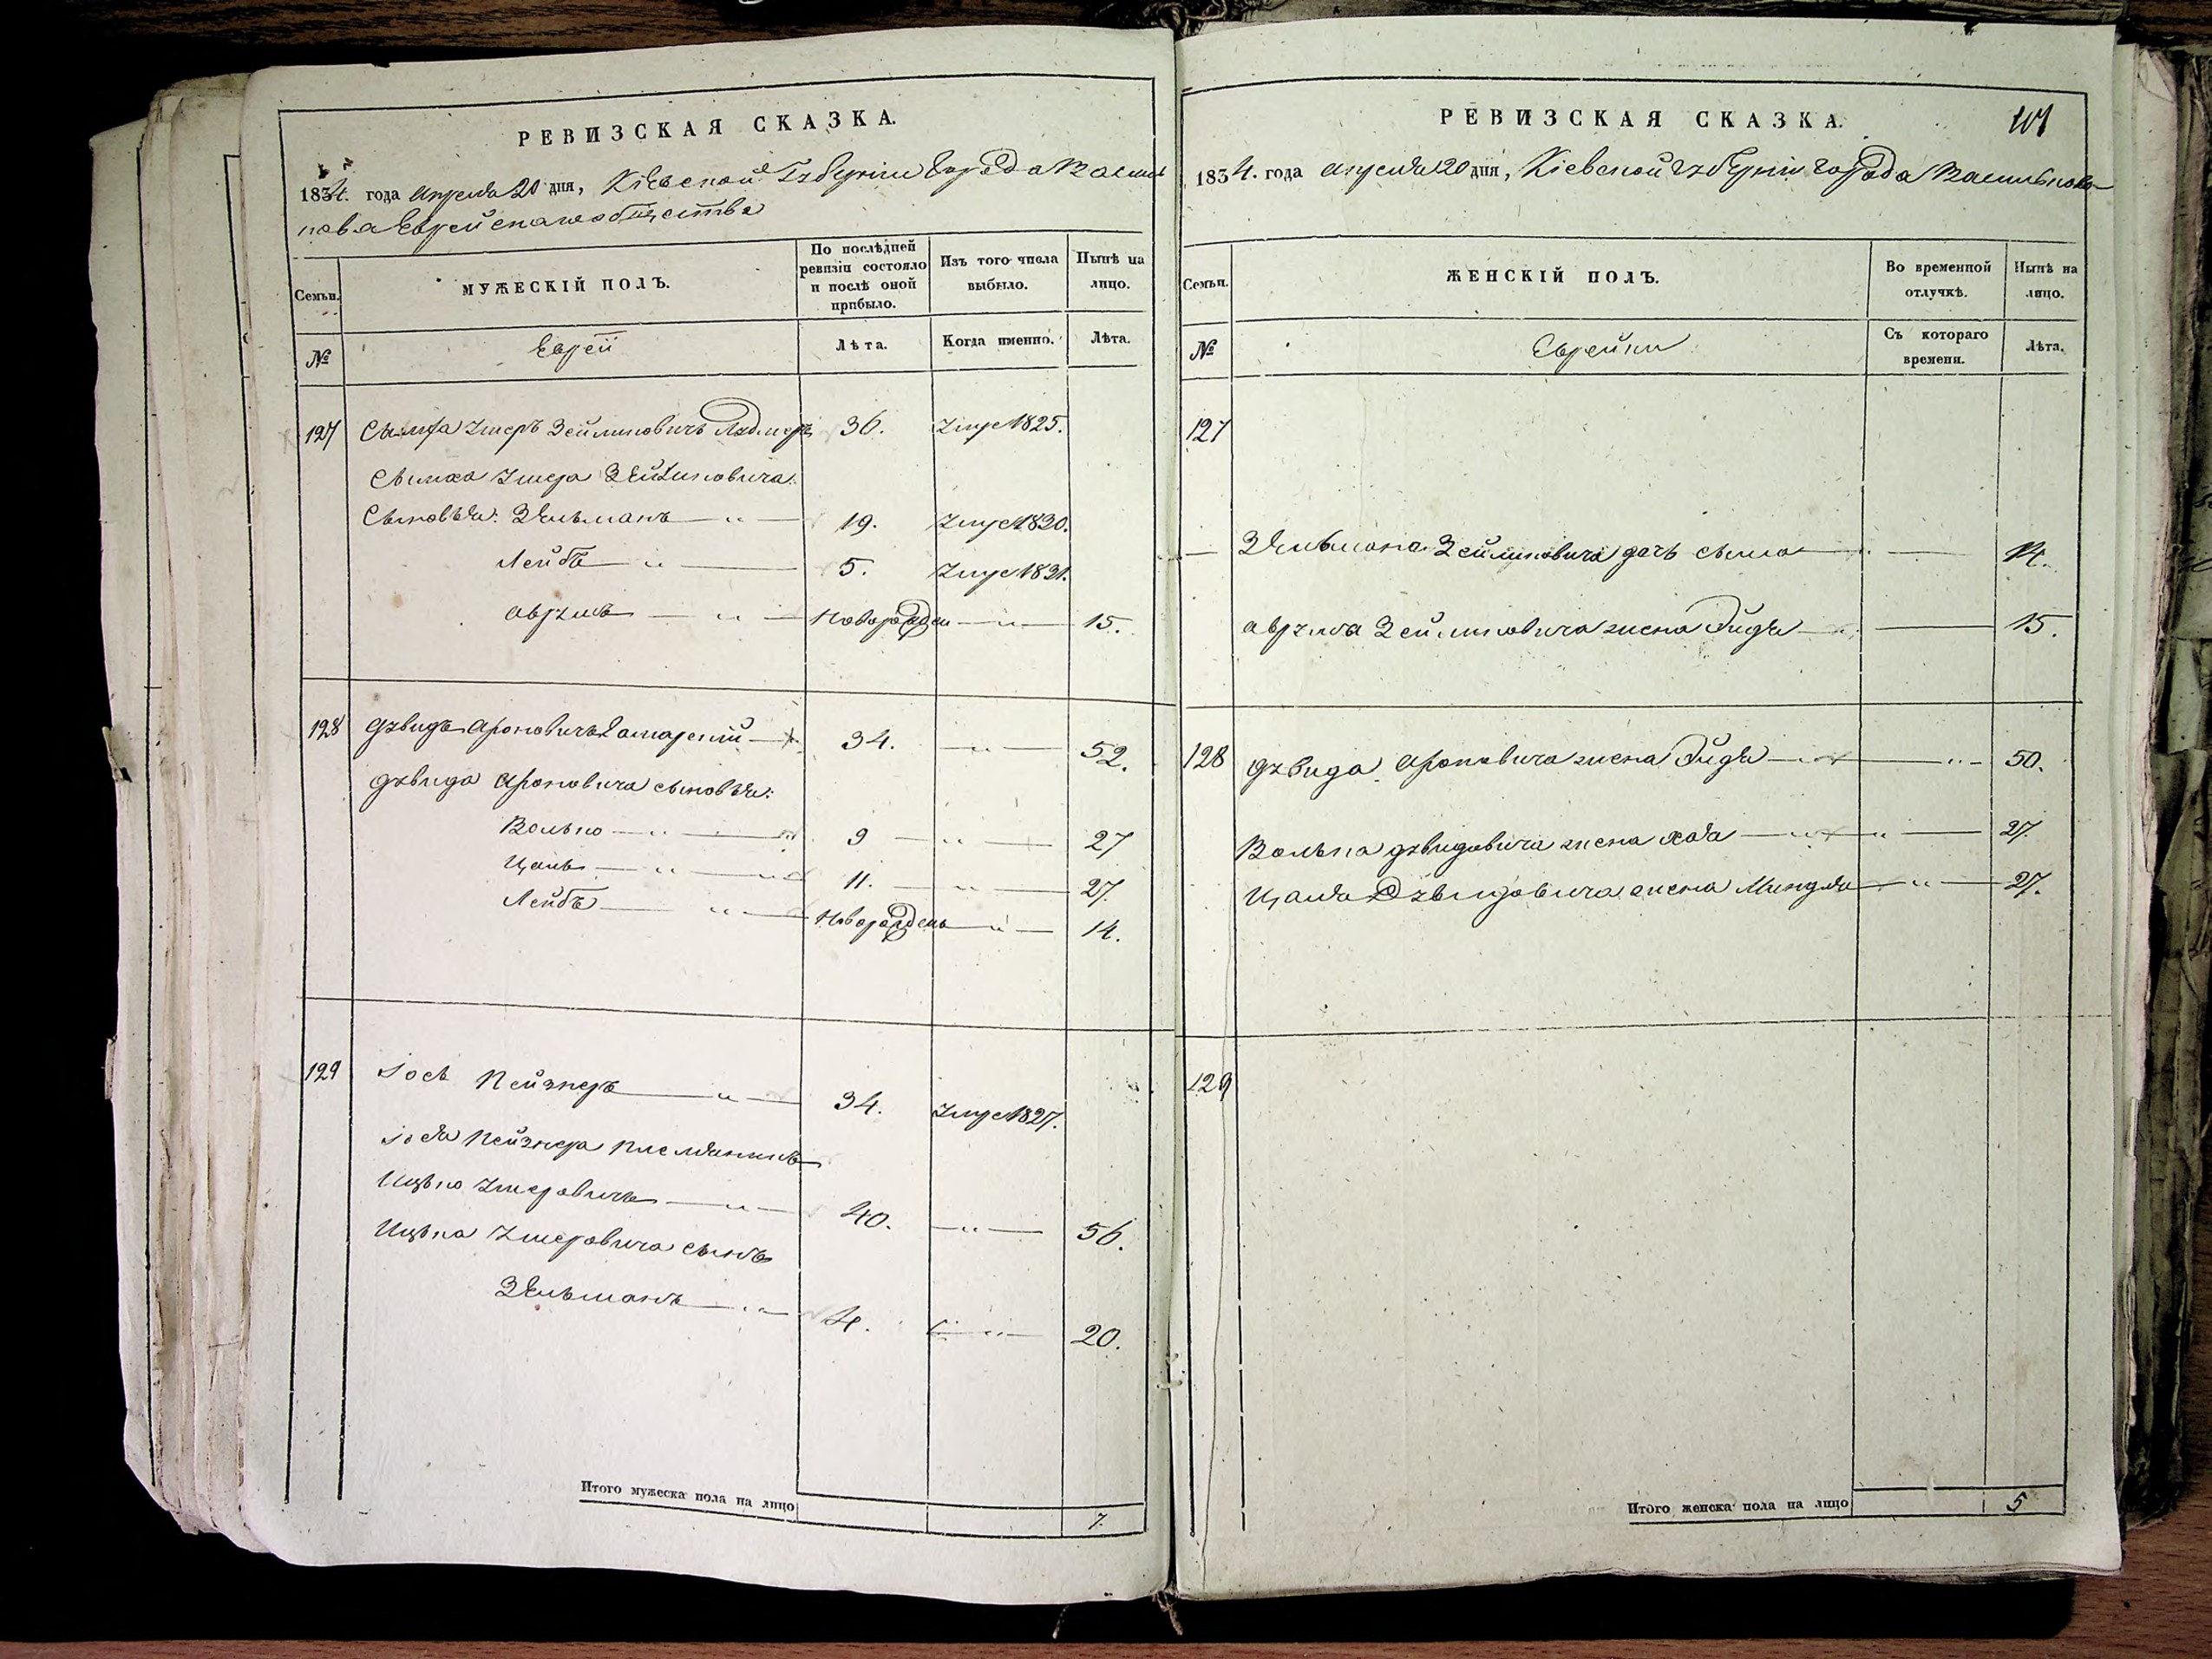 РЕВИЗСКАЯ СКАЗКА.
1834. года Апреля 20 дня, Кіевской Губерніи Города Василь
кова Еврейскаго общества
Семьи.
МУЖЕСКІЙ ПОЛЪ.
По послѣдней ревизіи состояло и послѣ оной прибыло.
Изъ того числа выбыло.
Нынѣ на лицо.
№
Еврей
Лѣта.
Когда именно.
Лѣта.
127 Сымха Умеръ Зельмановичъ 36. Умре 1825.
Сымха Умера Зельмановича
Сыновья: Зельманъ — " — 19. Умре 1830.
Лейба — " — 5. Умре 1831.
Аврумъ — " — Новорожден — " — 15.
128 Дувидъ Ароновичъ 34. — " — 52.
Дувида Ароновича сыновья:
Волько — " — 9 — " — 27
Цаль — " — 11. — " — 27.
Лейба — " — Новорожденъ — " — 14.
129 Іось Пейзнеръ — " — 34. Умре 1827.
Іося Пейзнера племянникъ
Ицько Умеровичъ — " — 40. — " — 56.
Ицька Умеровича сынъ
Зельманъ — " — 4. — " — 20.
Итого мужеска пола на лицо 7.
РЕВИЗСКАЯ СКАЗКА.
101
1834. года Апреля 20 дня, Кіевской Губерніи Города Василькова
Семьи.
ЖЕНСКІЙ ПОЛЪ.
Во временной отлучкѣ.
Нынѣ на лицо.
№
Еврейки
Съ котораго времени.
Лѣта.
127
Зельмана Зельмановича дочь Сыма — 14.
Аврума Зельмановича жена Эйдя — " — 15.
128 Дувида Ароновича жена Эйдя — " — 50.
Волька Дувидовича жена Хая — " — 27.
Цаля Дувидовича жена Миндля — " — 27.
129
Итого женска пола на лицо 5